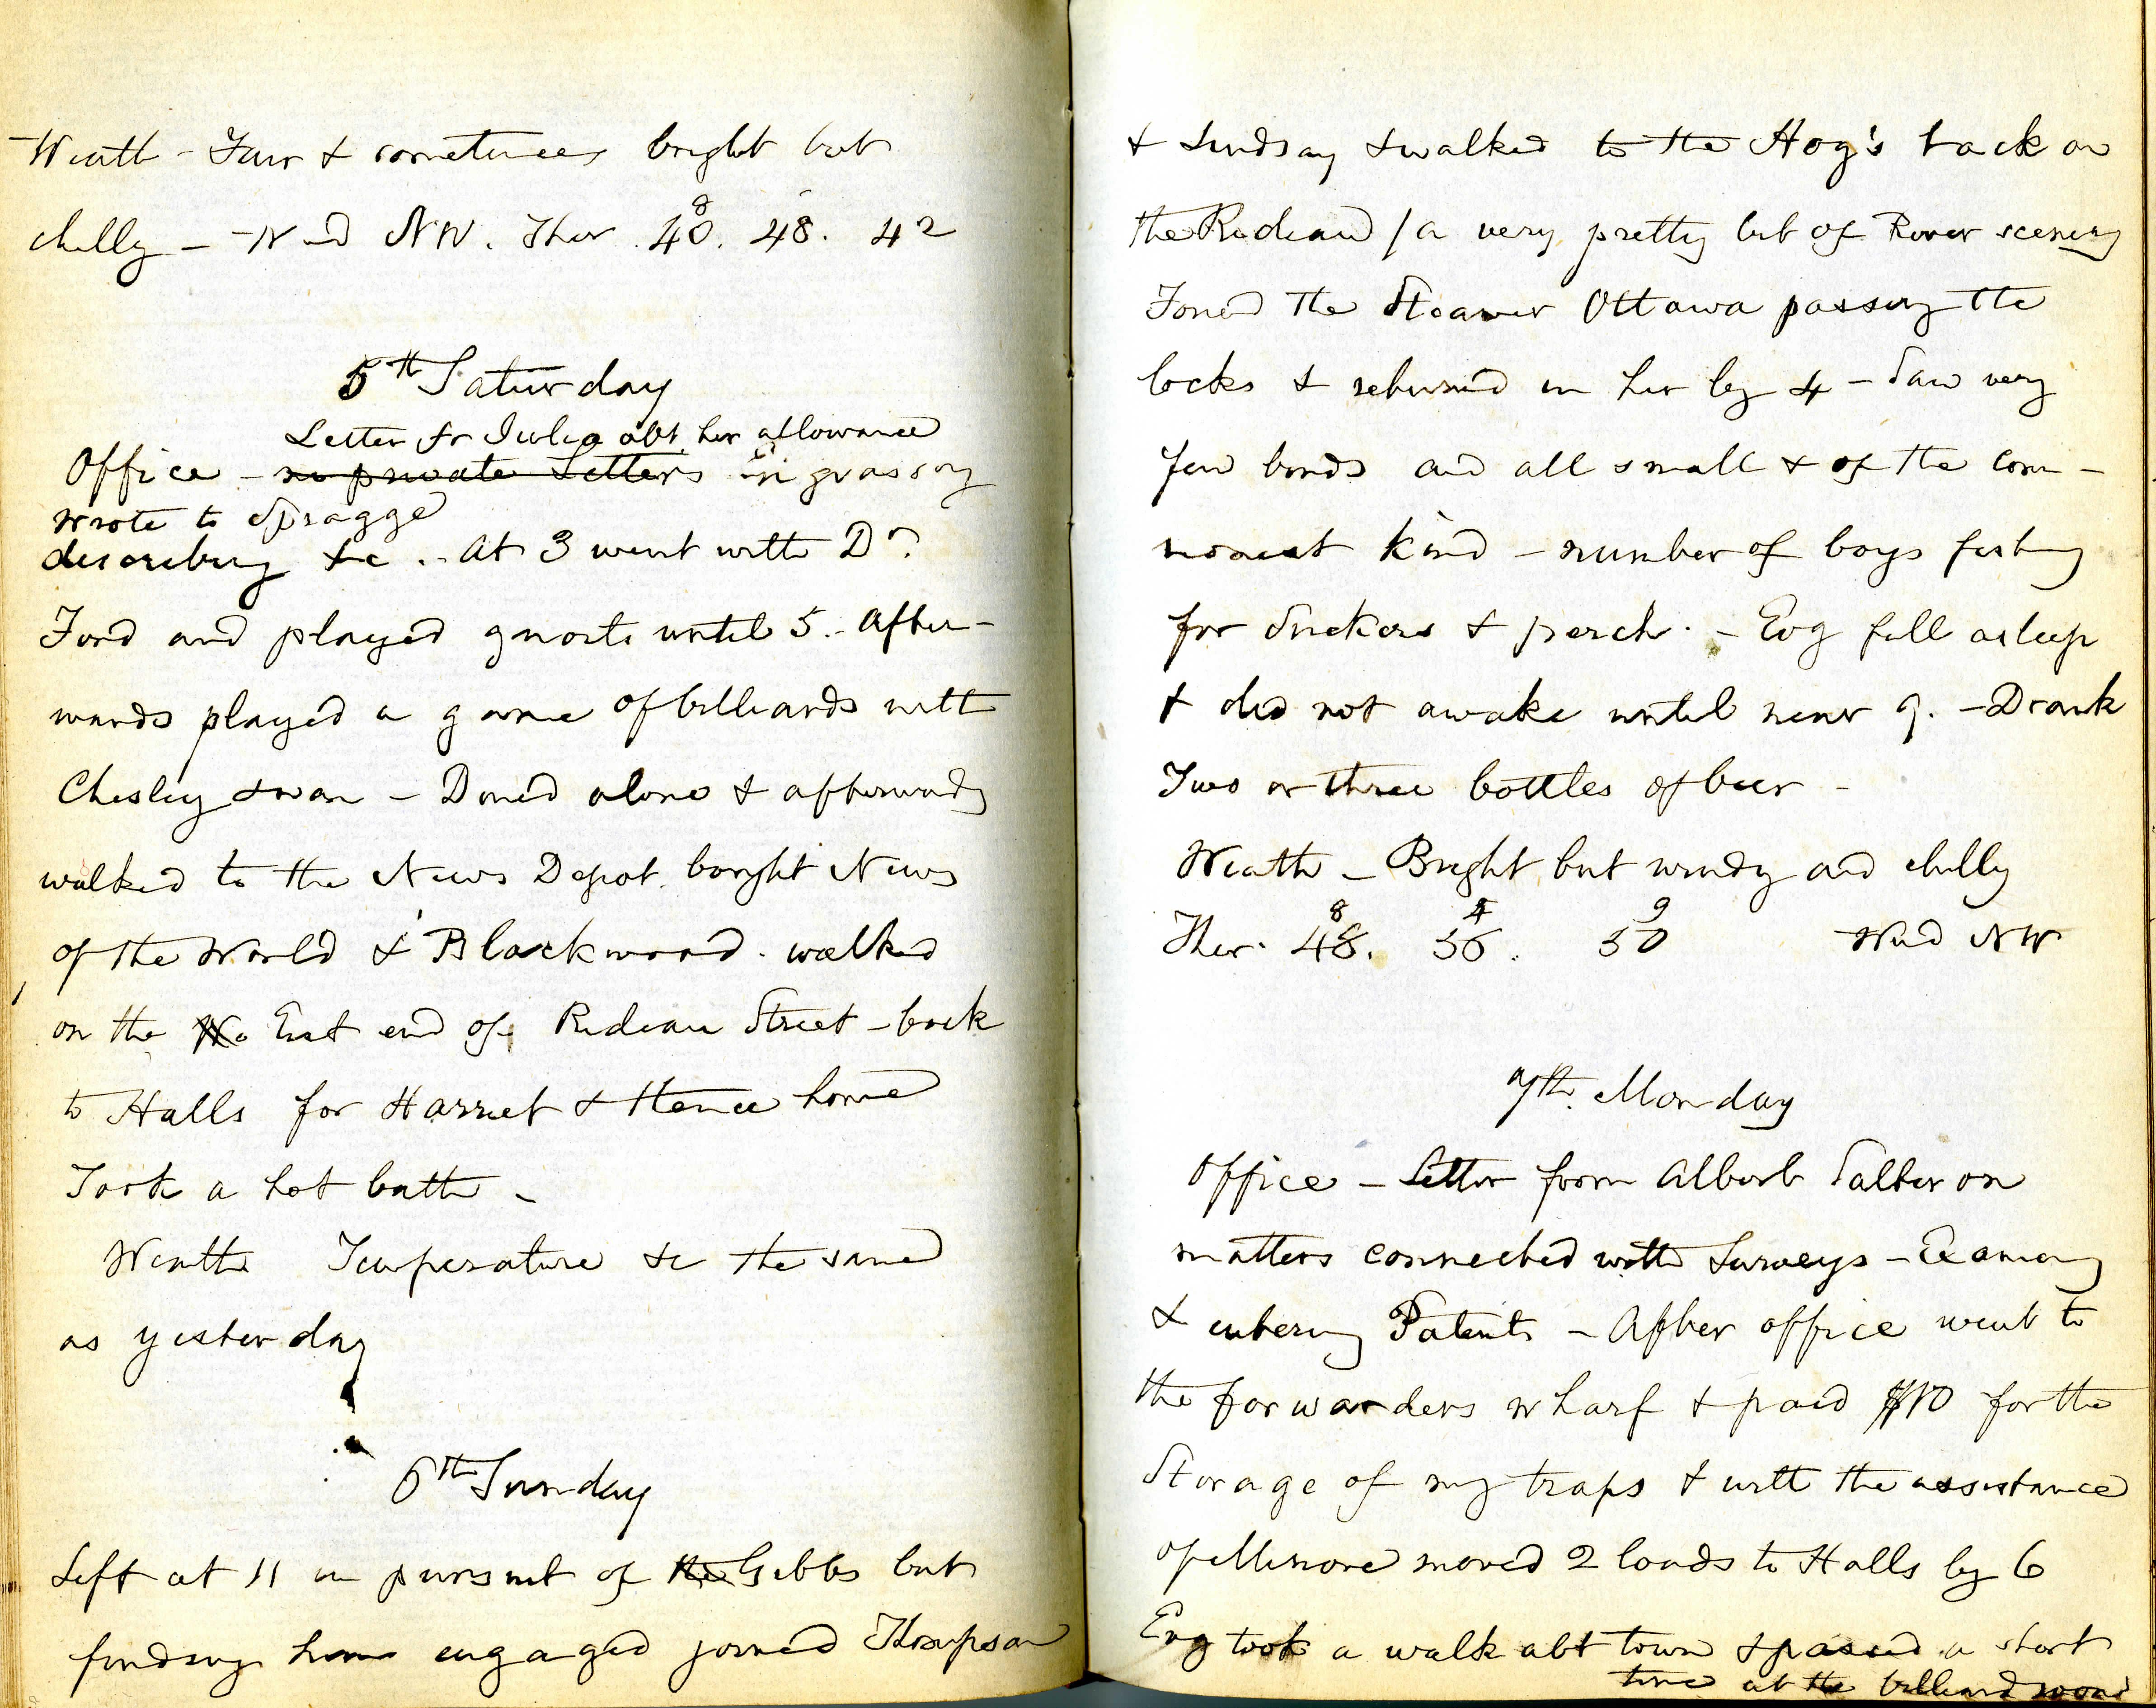 Weath - Fair & sometimes bright but
chilly - Wind NW. Ther. 40. 48. 42
8
5th Saturday
Letter fr Julia abt her allowance
Office - no private Letters in grossing
wrote to Spragge
describing &c. - At 3 went with Dr
Ford and played quoits until 5. - After-
wards played a game of billiards with
Chesley & won - Dined alone & afterwards
walked to the News Depot. bought News
of the World & Blackwood. walked
on the East end of Rideau Street - back
to Halls for Harriet & thence home
Took a hot bath -
Weath Temperature &c the same
as yesterday
6th Sunday
Left at 11 in pursuit of the Gibbs but
finding him engaged joined Thompson
& Lindsay & walked to the Hog's back on
the Rideau / a very pretty bit of River scenery
Found the Steamer Ottawa passing the
locks & returned in her by 4 - Saw very
few birds and all small & of the com-
monest kind - number of boys fishing
for suckers & perch. - Evg fell asleep
& did not awake until near 9. - Drank
Two or three bottles of beer -
Weath - Bright but windy and chilly
8 4 9
Ther. 48. 56. 50 Wind NW
7th Monday
Office - Letter from Albert Salter on
matters connected with Surveys - Examing
& entering Patents - After office went to
the forwarders wharf & paid $10 for the
Storage of my traps & with the assistance
of moved 2 loads to Halls by 6
Evg took a walk abt town & passed a short
time at the billiard room